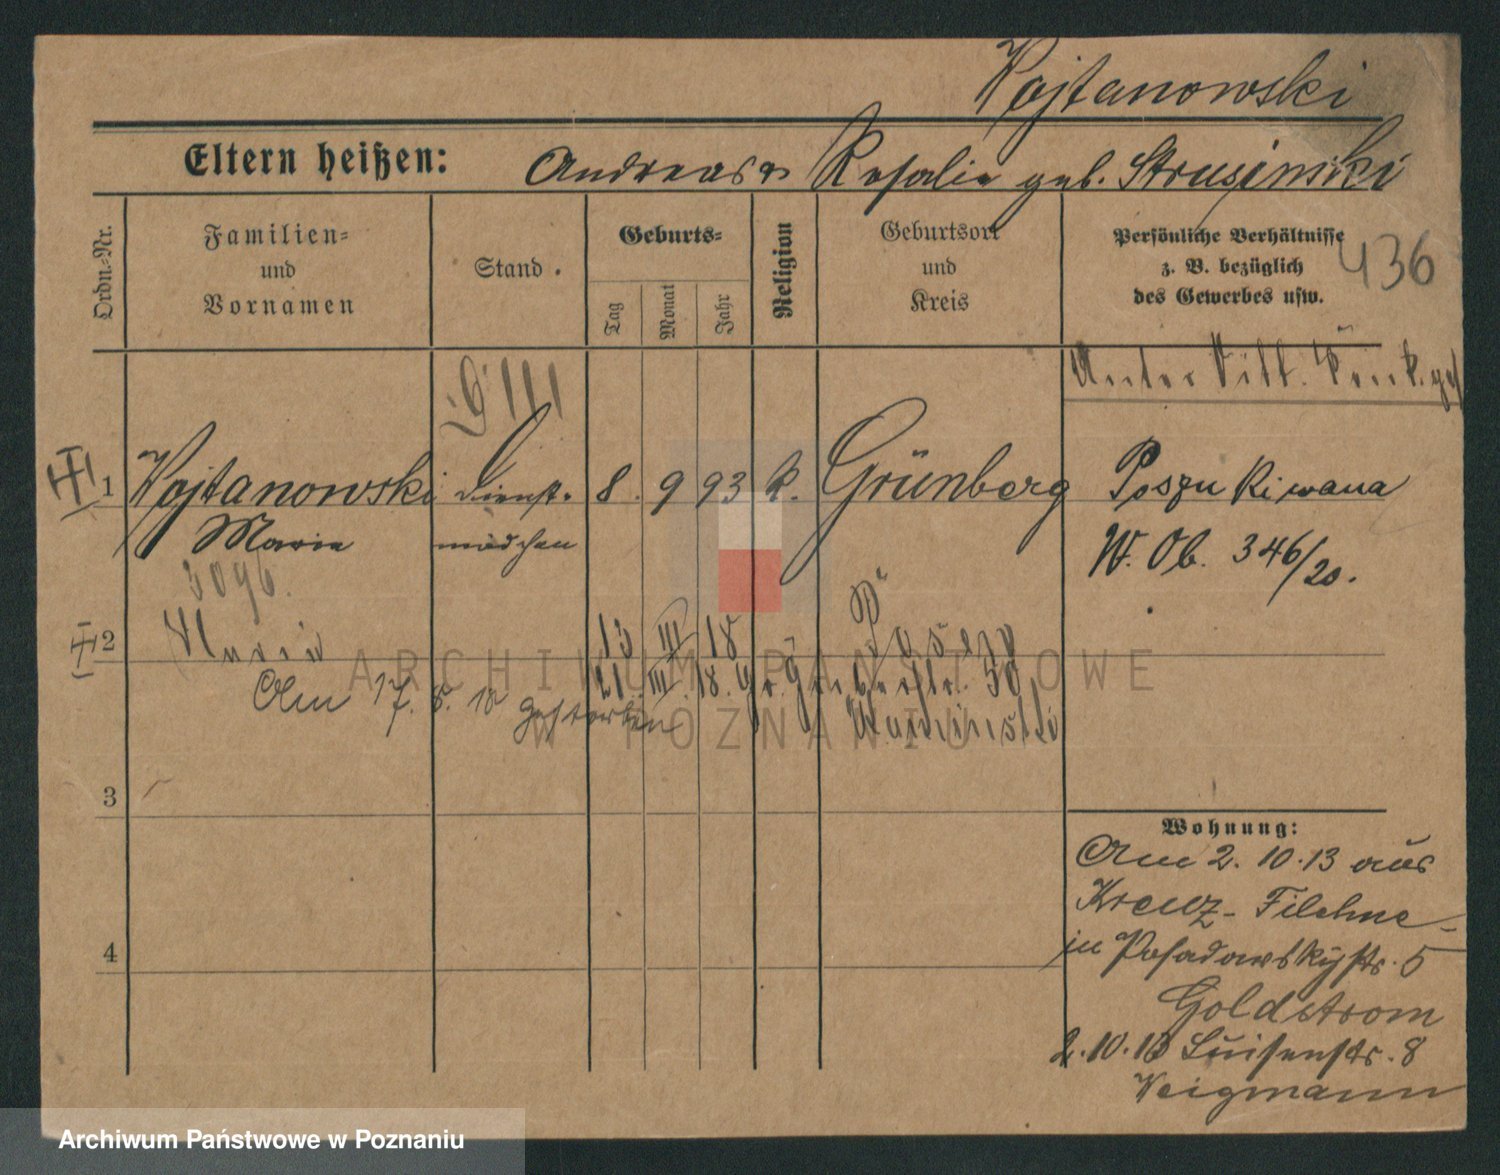 Wojtanowski
Eltern heißen: Andreas & Rosalie geb. Strusinski
Ordn.-Nr.
Familien-
und
Vornamen
Stand.
Geburts-
Tag
Monat
Jahr
Religion
Geburtsort
und
Kreis
Persönliche Verhältnisse
z. B. bezüglich
des Gewerbes usw.
436
Unter
1 Wojtanowski Dienst- 8. 9 93 k. Grünberg
Marie mädchen
Poszukiwana
W. Ob. 346/20.
3096.
2 Maria 13 III 18 Posen
21. III. 18. 50
Am 17. 5. 18 gestorben
Kaminski
3
4
Wohnung:
Am 2. 10. 13 aus
Kreuz - Filehne
in Posadowskystr. 5
Goldstrom
2. 10. 13 Luisenstr. 8
Weigmann
ARCHIWUM PAŃSTWOWE
W POZNANIU
Archiwum Państwowe w Poznaniu